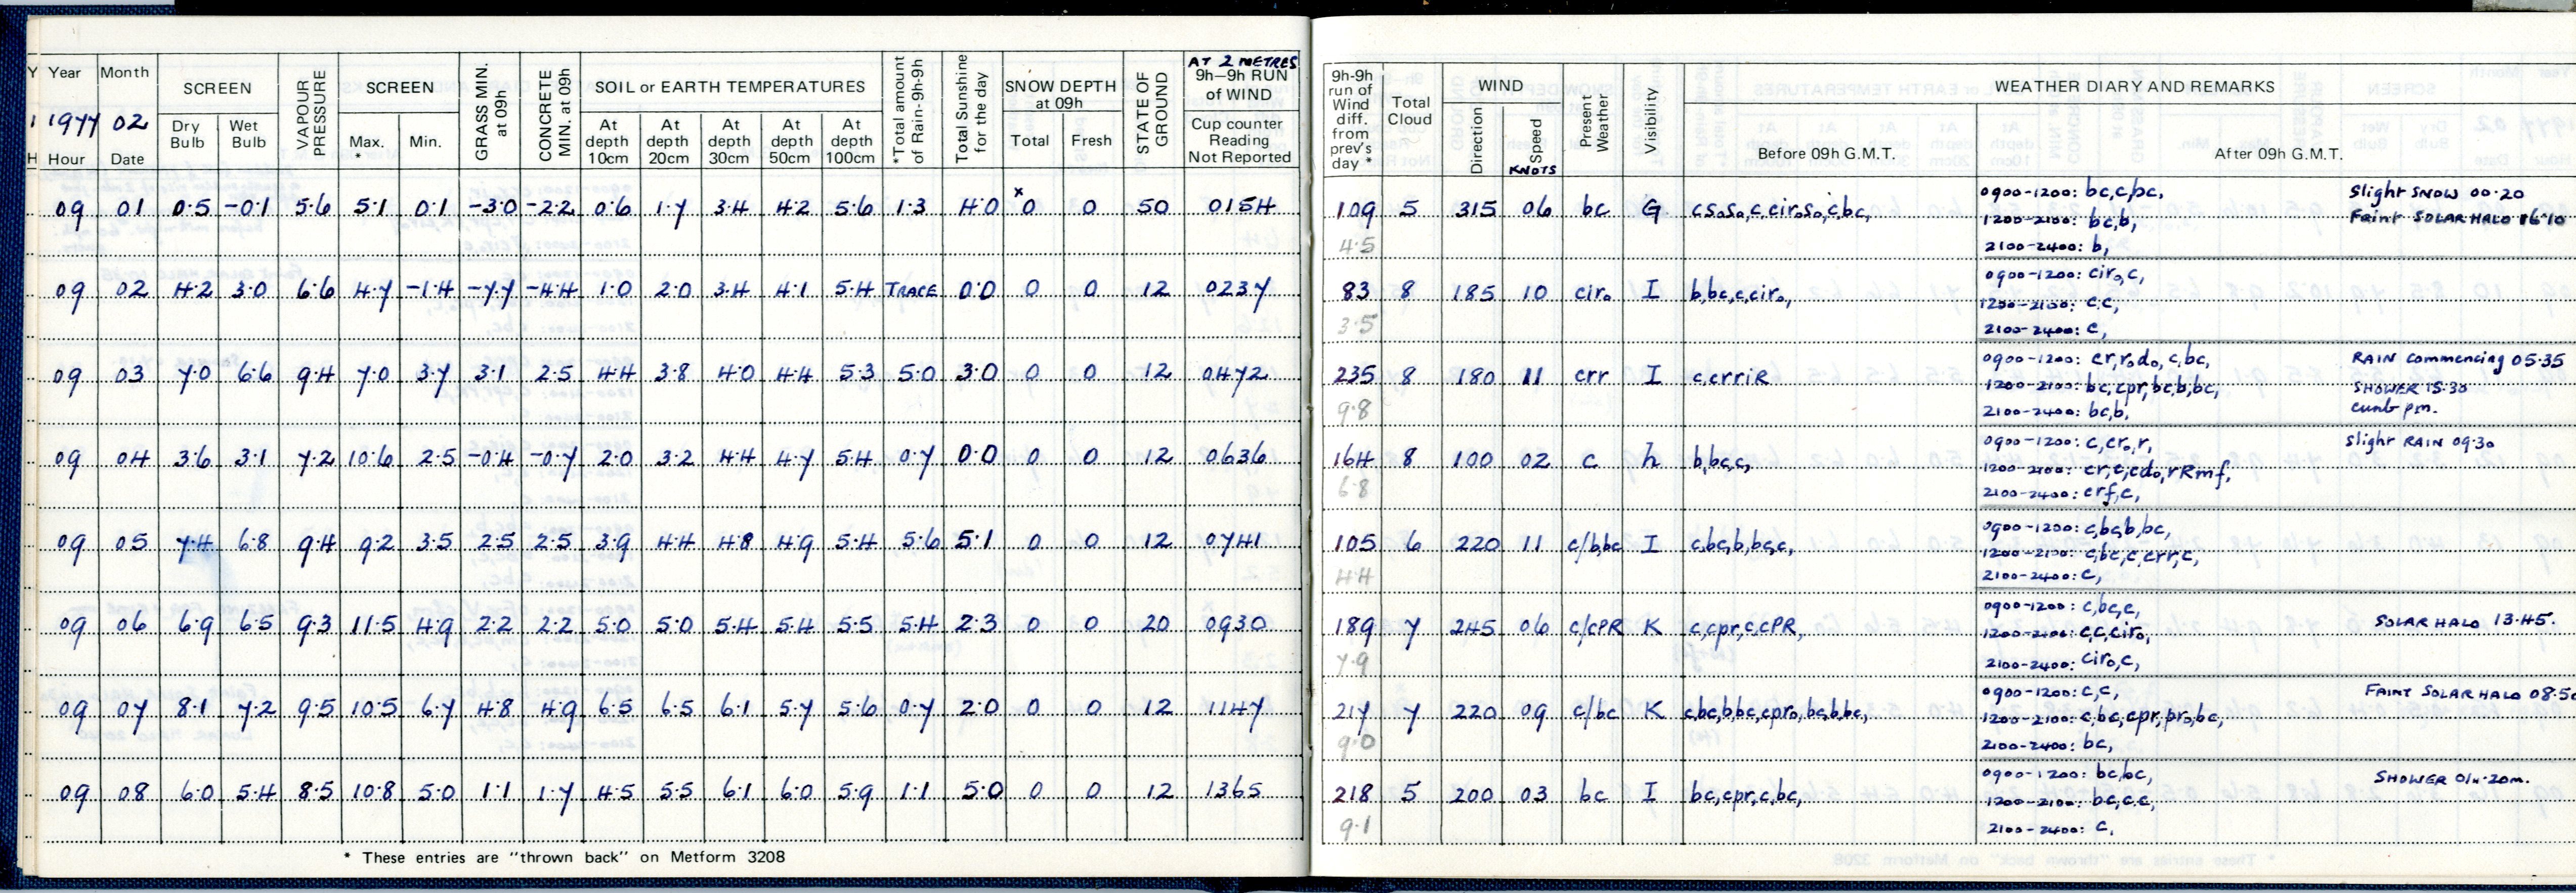 AT 2 METRES
Year Month SCREEN VAPOUR PRESSURE SCREEN GRASS MIN. at 09h CONCRETE MIN. at 09h SOIL or EARTH TEMPERATURES *Total amount of Rain-9h-9h Total Sunshine for the day SNOW DEPTH at 09h STATE OF GROUND 9h—9h RUN of WIND
1977 02 Dry Bulb Wet Bulb Max. * Min. At depth 10cm At depth 20cm At depth 30cm At depth 50cm At depth 100cm Total Fresh Cup counter Reading Not Reported
Hour Date
09 01 0.5 -0.1 5.6 5.1 0.1 -3.0 -2.2 0.6 1.7 3.4 4.2 5.6 1.3 4.0 x 0 0 50 0154
09 02 4.2 3.0 6.6 4.7 -1.4 -7.7 -4.4 1.0 2.0 3.4 4.1 5.4 TRACE 0.0 0 0 12 0237
09 03 7.0 6.6 9.4 7.0 3.7 3.1 2.5 4.4 3.8 4.0 4.4 5.3 5.0 3.0 0 0 12 0472
09 04 3.6 3.1 7.2 10.6 2.5 -0.4 -0.7 2.0 3.2 4.4 4.7 5.4 0.7 0.0 0 0 12 0636
09 05 7.4 6.8 9.4 9.2 3.5 2.5 2.5 3.9 4.4 4.8 4.9 5.4 5.6 5.1 0 0 12 0741
09 06 6.9 6.5 9.3 11.5 4.9 2.2 2.2 5.0 5.0 5.4 5.4 5.5 5.4 2.3 0 0 20 0930
09 07 8.1 7.2 9.5 10.5 6.7 4.8 4.9 6.5 6.5 6.1 5.7 5.6 0.7 2.0 0 0 12 1147
09 08 6.0 5.4 8.5 10.8 5.0 1.1 1.7 4.5 5.5 6.1 6.0 5.9 1.1 5.0 0 0 12 1365
* These entries are "thrown back" on Metform 3208
9h-9h run of Wind diff. from prev's day * Total Cloud WIND Direction Speed KNOTS Present Weather Visibility WEATHER DIARY AND REMARKS
Before 09h G.M.T. After 09h G.M.T.
109 5 315 06 bc G
0900-1200: bc,c,bc, Slight SNOW 00.20
1200-2100: bc,b, Faint SOLAR HALO 16.10
4.5 2100-2400: b,
0900-1200: ciro,c,
83 8 185 10 ciro I b,bc,c,ciro,
1200-2100: c,c,
3.5 2100-2400: c,
0900-1200: cr,rodo,c,bc, RAIN commencing 05.35
235 8 180 11 crr I c,crriR
1200-2100: bc,cpr,bc,b,bc, SHOWER 15.30
9.8 2100-2400: bc,b, cunb pm.
0900-1200: c,cro,r, slight RAIN 09.30
164 8 100 02 c h b,bc,c,
1200-2100: cr,c,cdo,rRmf,
6.8 2100-2400: crf,c,
0900-1200: c,bc,b,bc,
105 6 220 11 c/b,bc I c,bc,b,bc,c,
1200-2100: c,bc,c,crr,c,
4.4 2100-2400: c,
0900-1200: c,bc,c,
189 7 245 06 c/cPR K c,cpr,c,cPR,
SOLAR HALO 13.45.
1200-2100: c,c,ciro,
7.9 2100-2400: ciro,c,
0900-1200: c,c, FAINT SOLAR HALO
217 7 220 09 c/bc K c,bc,b,bc,cpro,bc,b,bc,
1200-2100: c,bc,cpr,pro,bc,
9.0 2100-2400: bc,
0900-1200: bc,bc, SHOWER 01h.20m.
218 5 200 03 bc I bc,cpr,c,bc,
1200-2100: bc,c,c,
9.1 2100-2400: c,